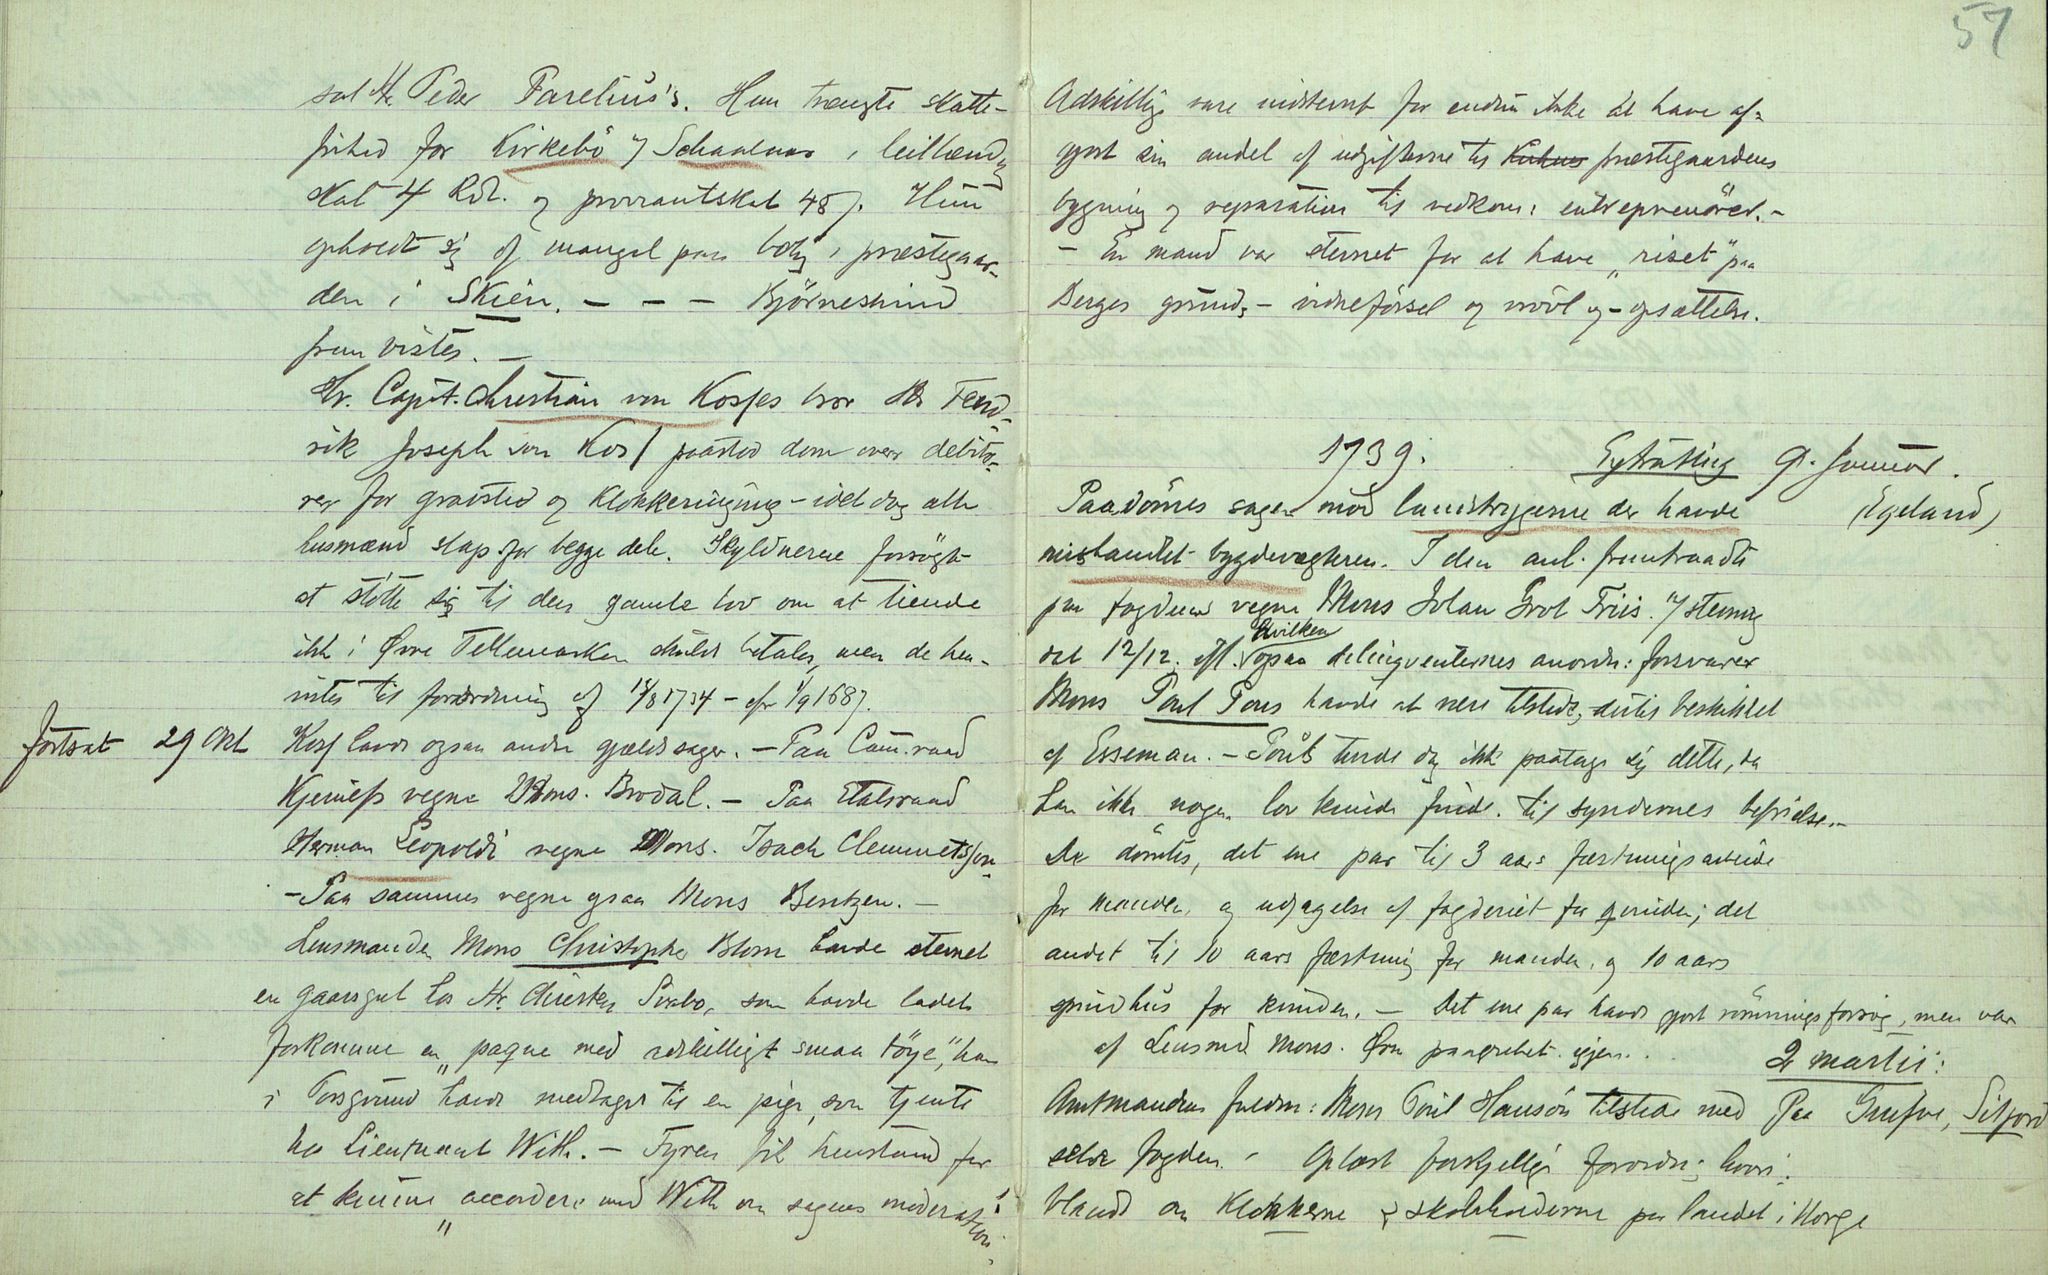 sal Hr. Peder Parelius's. Hun trængte skatte-
frihed for Kirkebö i leilænding
skat 4 Rdl. og proviantskat 48 β. Hun
opholdt sig af mangel paa bolig i præstegaar-
den i Skien. — — — Björneskind
fremvistes. —
Hr. Capit. Christian von Kosses bror Hr. Fend-
rik Joseph von Koss paastod dom over debito-
rer for gravsted og klokkeringing — idet dog alle
husmænd slap for begge dele. Skyldnerne forsögte
at stötte sig til den gamle lov om at tiende
ikke i Övre Tellemarken skulde betales, men de hen-
vistes til forordning af 1734 - 1687.
fortsat 29 Okt Koss havde ogsaa andre gjældssager. — Paa Cam.raad
vegne Mons. Brodal. — Paa Etatsraad
Herman Leopoldi vegne Mons. Isach Clemmetssön.
— Paa sammes vegne ogsaa Mons Bentzen. —
Lensmanden Mons Christopher Blom havde stevnet
en gaardsgut hos Hr. som havde ladet
forkomme en „paqve med adskilligt smaa töye", han
i Porsgrund havde medtaget til en pige, som tjente
hos Lieutnant With. — Fyren fik henstand for
at kunne „accordere med With om sagens moderation.
57
Adskillige vare indstevnt for endnu ikke at have af-
gjort sin andel af udgifterne til præstegaardens
bygning og reparation til vedkom: entreprenörer. —
— En mand var stevnet for at have „riset" paa
Berges grund, — vidneförsel og vrövl og — opsættelse.
1739. 9. Januar.
(Egeland)
Paadömes sagen mod landstrygerne der havde
mishandlet bygdevægteren. I den anl. fremtraadte
paa fogdens vegne Mons Johan Grot Friis. e/ stevning
det 12/12. hvilken ogsaa delinqventernes anordn: forsvarer
Mons Poul Pous havde at være tilstede, dertil beskikket
af Esseman. — turde dog ikke paatage sig dette, da
han ikke nogen lov kunde finde til syndernes befrielse. —
De dömtes, det ene par til 3 aars fæstningsarbeide
for manden, og udjagelse af fogderiet for qvinden; det
andet til 10 aars fæstning for manden, og 10 aars
spindhus for kvinden. — Det ene par havde gjort römningsforsög, men var
af Lensmd Mons. paagrebet igjen.
2 martii:
Amtmandens fuldm: Mons Poul Hansön tilstede med Paa
selve fogden. — Oplæst forskjellige forordn: hvori-
blandt om Klokkerne & skoleholderne paa landet i Norge